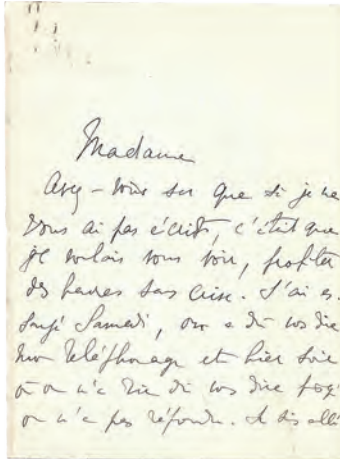 Madame
Avez-vous su que si je ne
vous ai pas écrit, c'était que
je voulais vous voir, profiter
des heures sans crise. J'ai es-
sayé Samedi, on a dû vous dire
mon téléphonage et hier soir
où on n'a rien dû vous dire
on n'a pas répondu. allé